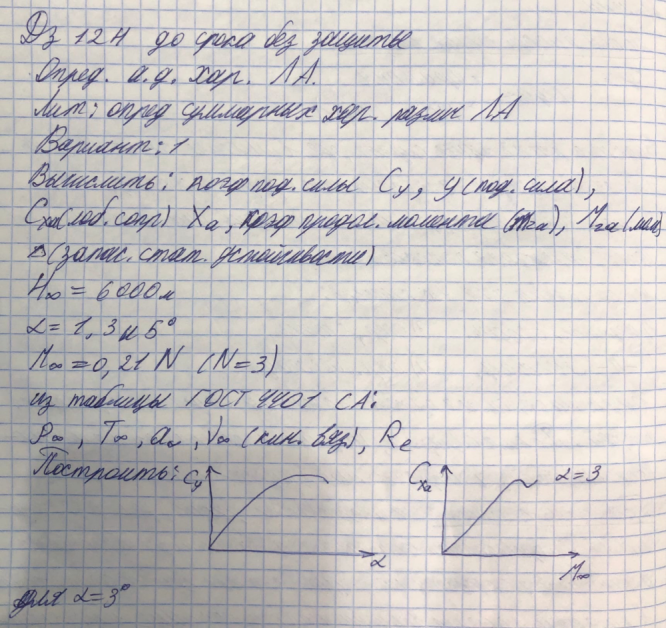 Дз 12Н до срока без защиты
Опред. а.д. хар. ЛА.
Лит: опред суммарных хар. разми ЛА
Вариант: 1
Вычислить: коэф под. силы Cy, y (под. сила),
Cxa (лоб. сопр) Xa, коэф продол. момента (mza), Mza (мом)
(запас. стат. устойчивости)
H∞ = 6000м
α = 1, 3 и 5°
M∞ = 0,21 N (N=3)
из таблицы ГОСТ 4401 СА:
ρ∞, T∞, a∞, ν∞ (кин. вяз.), Re
Построить: Cy Cxa α=3
α M∞
для α=3°